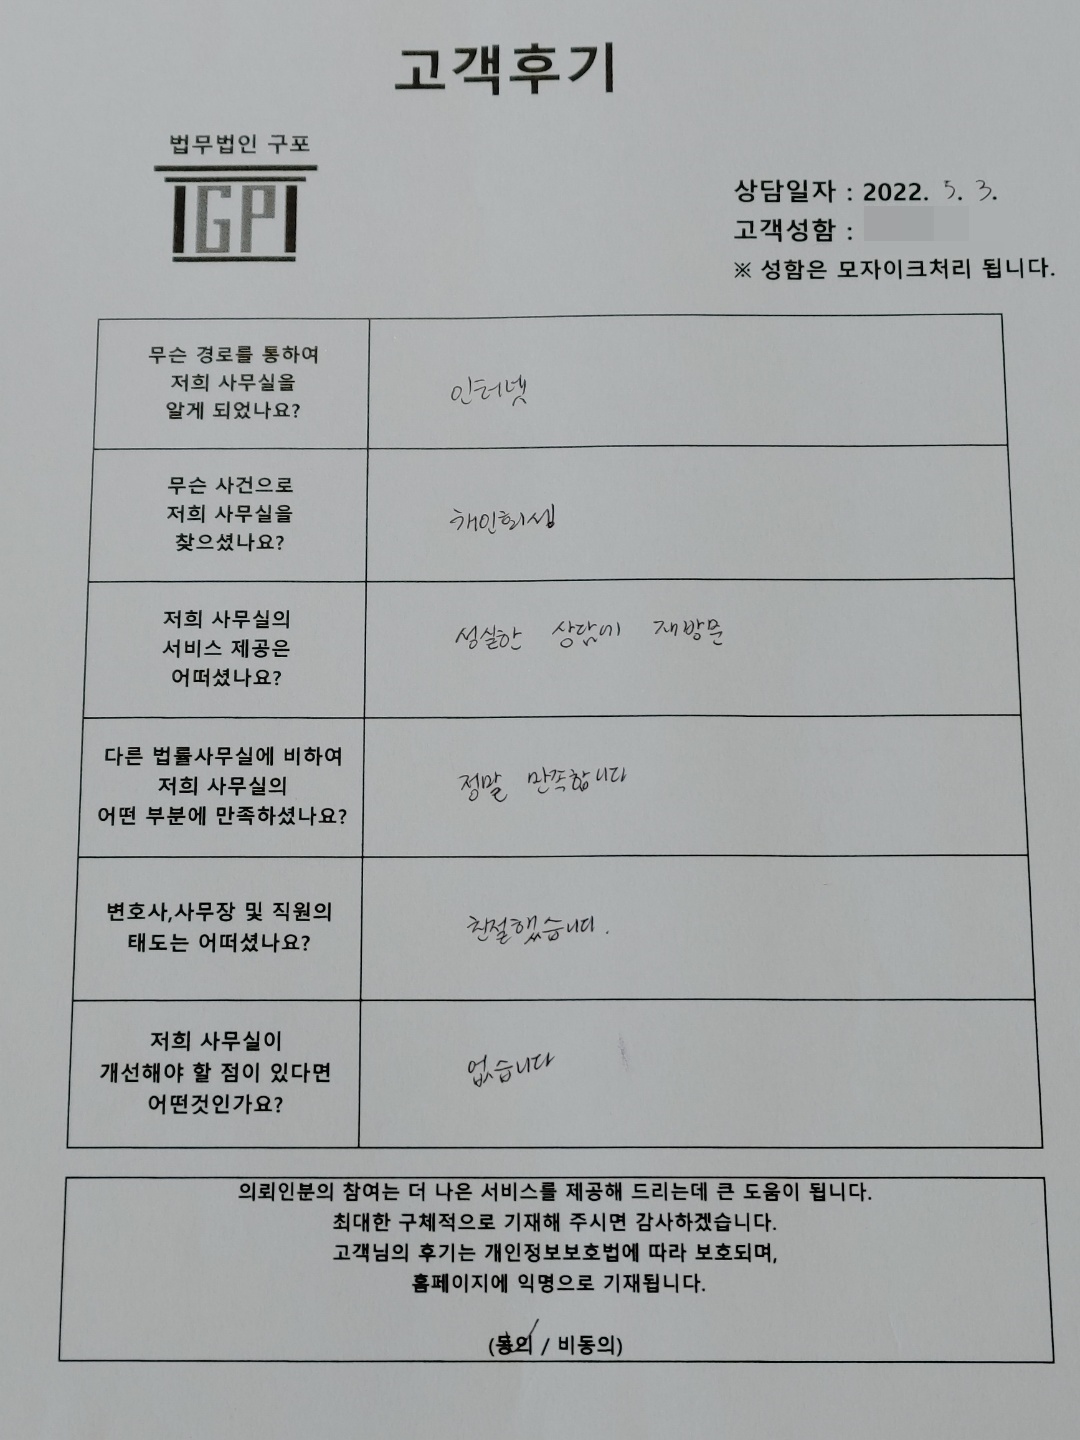 고객후기
법무법인 구포
GP
상담일자 : 2022. 5. 3.
고객성함 :
※ 성함은 모자이크처리 됩니다.
무슨 경로를 통하여
저희 사무실을
알게 되었나요?
인터넷
무슨 사건으로
저희 사무실을
찾으셨나요?
개인회생
저희 사무실의
서비스 제공은
어떠셨나요?
성실한 상담에 재방문
다른 법률사무실에 비하여
저희 사무실의
어떤 부분에 만족하셨나요?
정말 만족합니다
변호사,사무장 및 직원의
태도는 어떠셨나요?
친절했습니다.
저희 사무실이
개선해야 할 점이 있다면
어떤것인가요?
없습니다
의뢰인분의 참여는 더 나은 서비스를 제공해 드리는데 큰 도움이 됩니다.
최대한 구체적으로 기재해 주시면 감사하겠습니다.
고객님의 후기는 개인정보보호법에 따라 보호되며,
홈페이지에 익명으로 기재됩니다.
(동의 / 비동의)